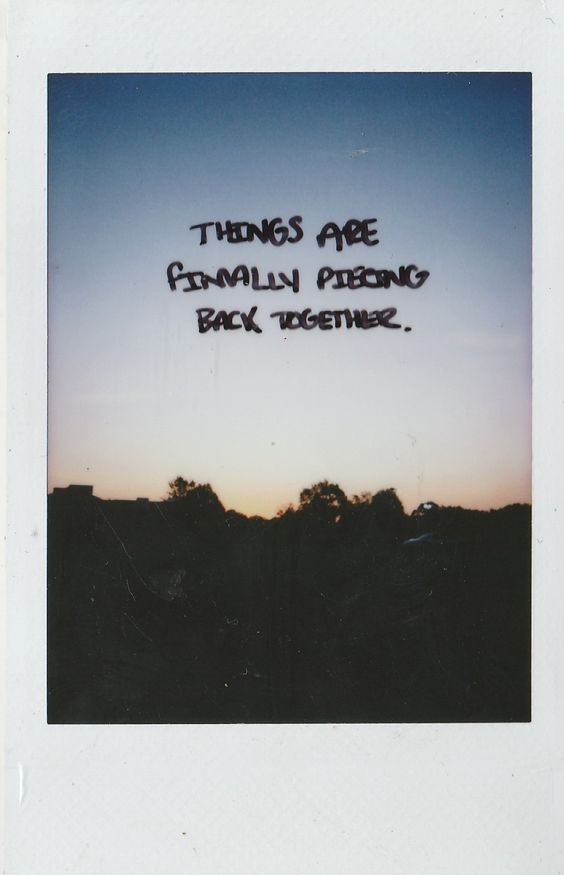 THINGS ARE
FINALLY PIECING
BACK TOGETHER.